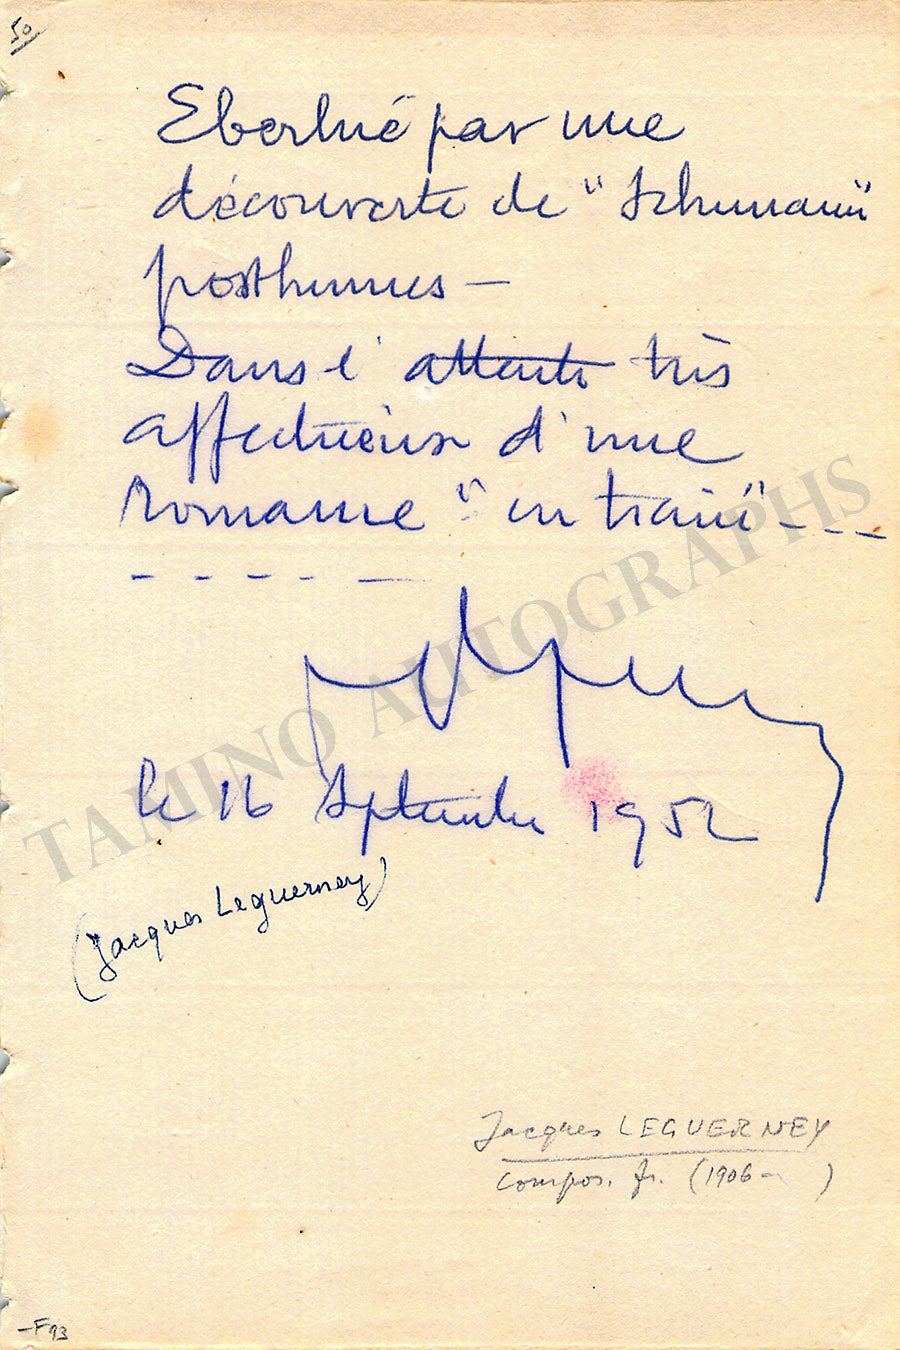 50
Eberlué par une
découverte de "Schumann"
posthumes —
Dans l'attente très
affectueuse d'une
Romance "en train" - - -
- - - - —
le 16 Septembre 1952
(Jacques Leguerney)
Jacques LEGUERNEY
compos. fr. (1906- )
—F93
TAMINO AUTOGRAPHS